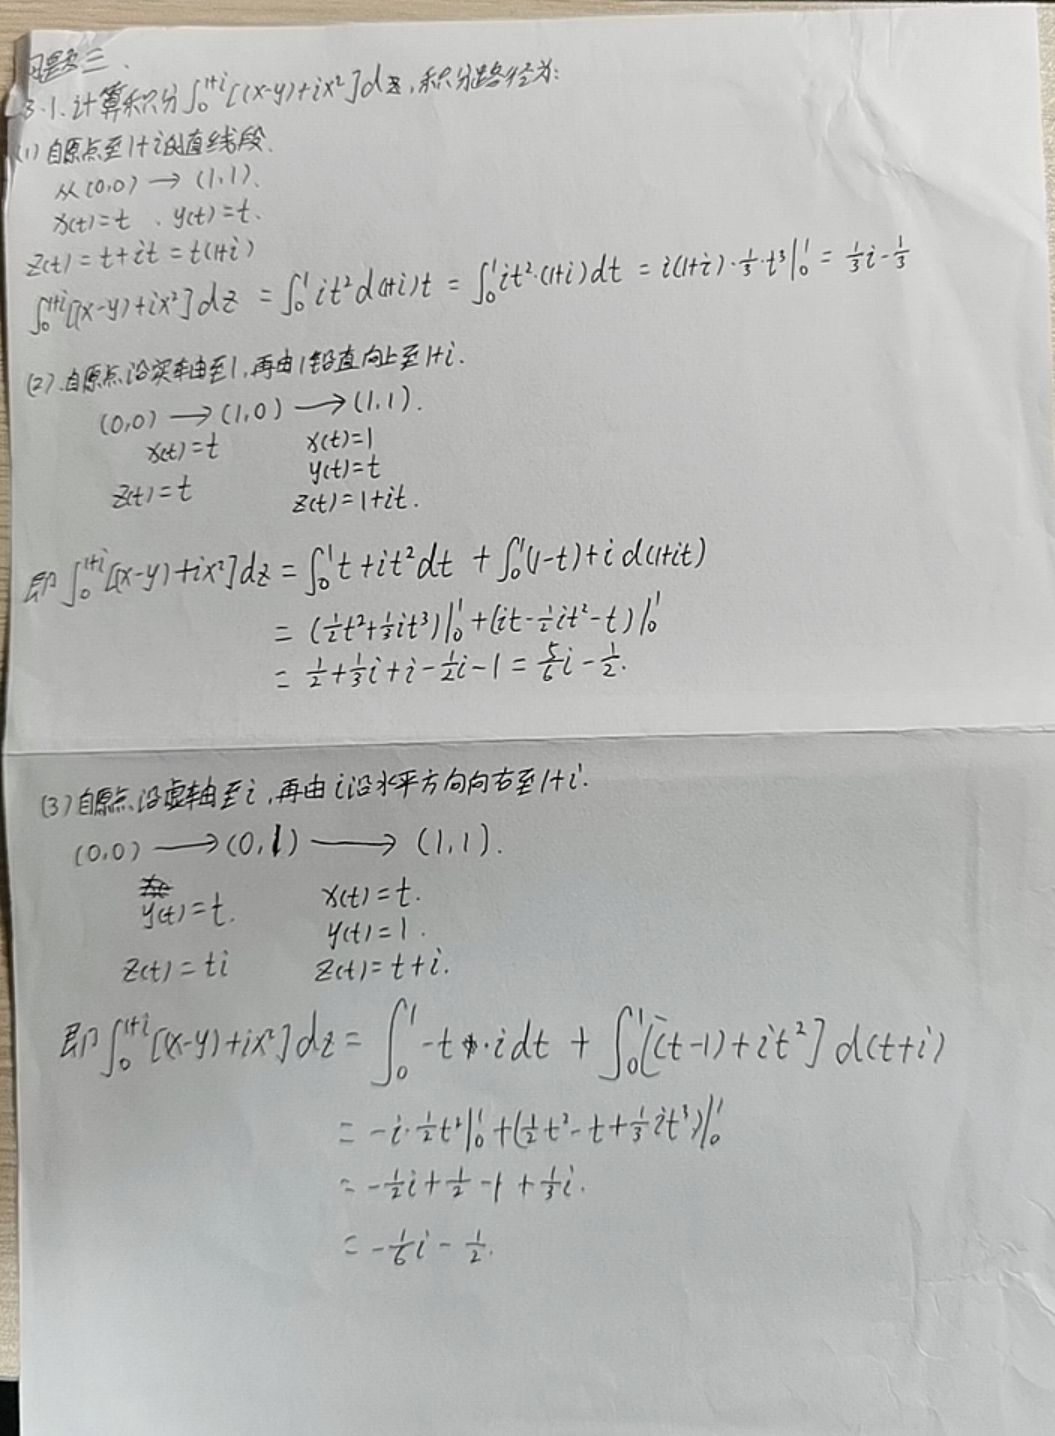 习题三、
3.1.计算积分∫₀¹⁺ⁱ[(x-y)+ix²]dz,积分路径为:
(1)自原点至1+i的直线段.
从(0,0)→(1,1).
x(t)=t、y(t)=t.
z(t)=t+it=t(1+i)
∫₀¹⁺ⁱ[(x-y)+ix²]dz = ∫₀¹it²d(1+i)t = ∫₀¹it²·(1+i)dt = i(1+i)·⅓·t³|₀¹ = ⅓i-⅓
(2).自原点沿实轴至1,再由1铅直向上至1+i.
(0,0)→(1,0)→(1,1).
x(t)=t x(t)=1
y(t)=t
z(t)=t z(t)=1+it.
即∫₀¹⁺ⁱ[(x-y)+ix²]dz=∫₀¹t+it²dt+∫₀¹(1-t)+i d(1+it)
=(½t²+⅓it³)|₀¹+(it-½it²-t)|₀¹
=½+⅓i+i-½i-1=⅚i-½.
(3)自原点沿虚轴至i,再由i沿水平方向向右至1+i.
(0,0)→(0,1)→(1,1).
y(t)=t. x(t)=t.
y(t)=1.
z(t)=ti z(t)=t+i.
即∫₀¹⁺ⁱ[(x-y)+ix²]dz=∫₀¹-t·idt+∫₀¹[(t-1)+it²]d(t+i)
=-i·½t²|₀¹+(½t²-t+⅓it³)|₀¹
=-½i+½-1+⅓i.
=-⅙i-½.